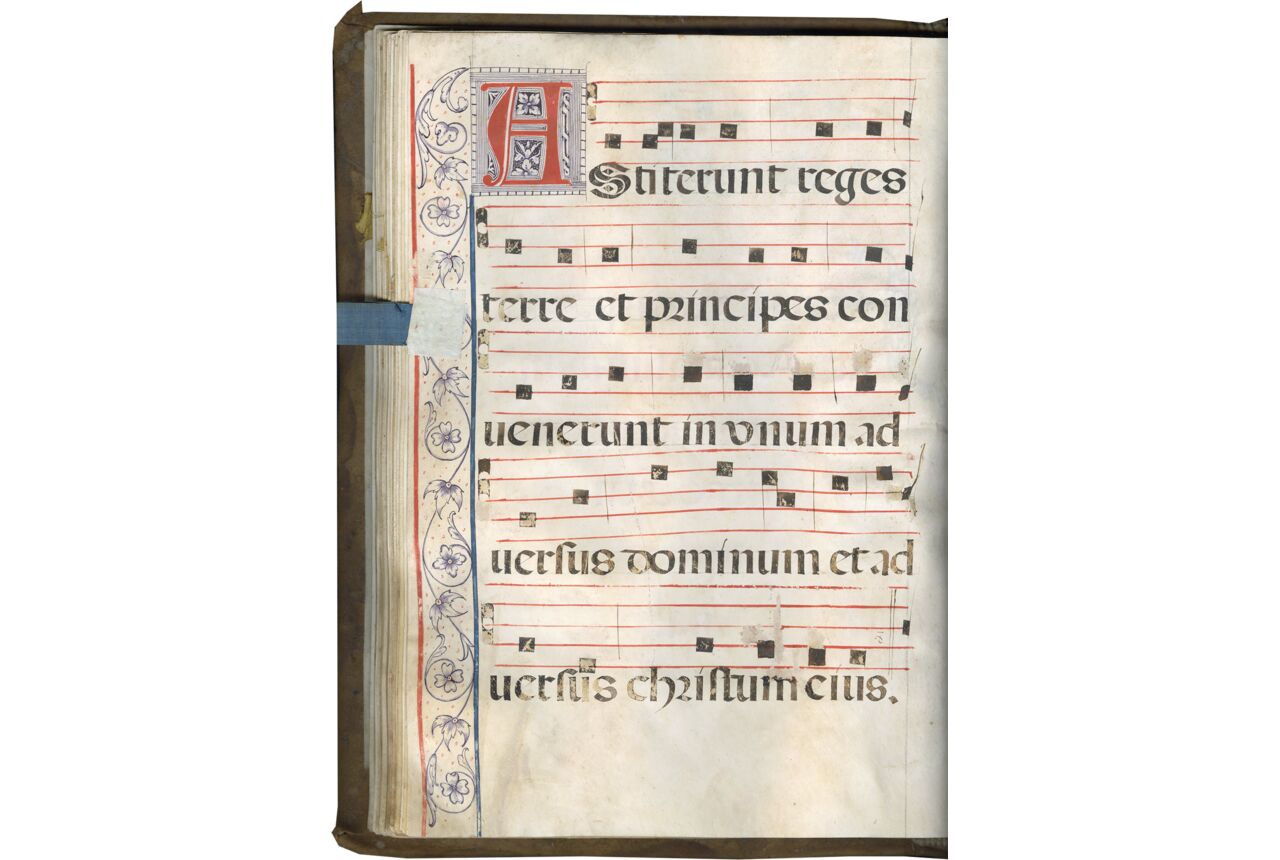 AStiterunt reges
terre et principes con
uenerunt in vnum ad
uersus dominum et ad
uersus christum eius.